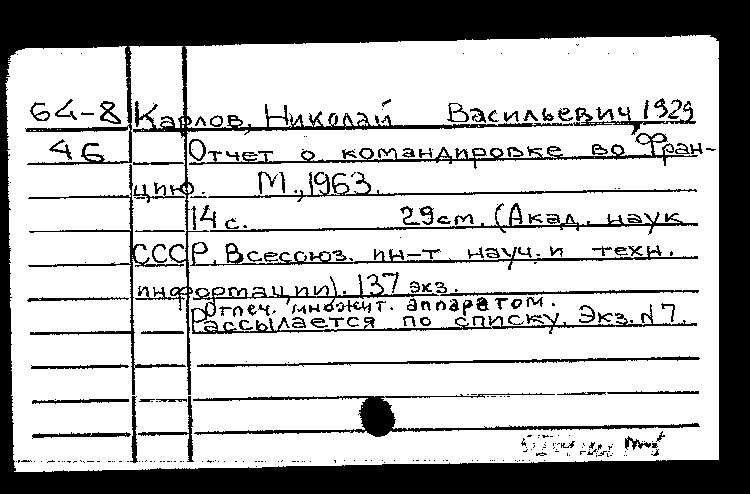 64-8 Карлов, Николай Васильевич, 1929
46 Отчет о командировке во Фран-
цию. М., 1963.
14 с. 29 cm. (Акад. наук
СССР. Всесоюз. ин-т науч. и техн.
информации). 137 экз.
Отпеч. множит. аппаратом.
Рассылается по списку. Экз. N 7.